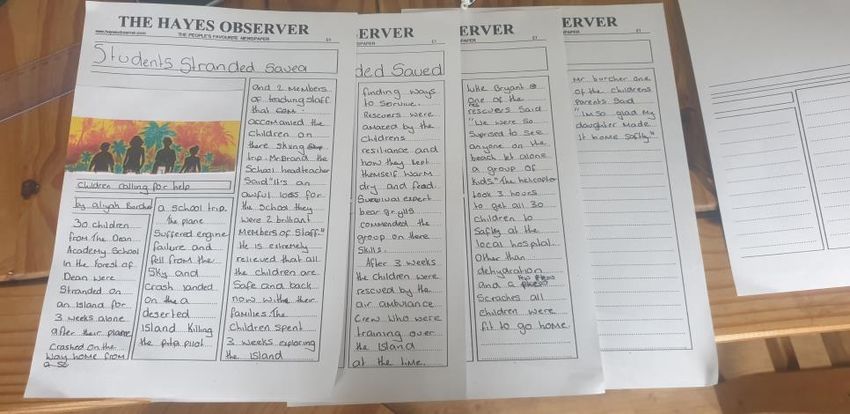 THE HAYES OBSERVER
www.hayesobserver.com
THE PEOPLE'S FAVOURITE NEWSPAPER
£1
Students Stranded Saved
Children calling for help
by aliyah Burcher
30 children
from The Dean
Academy School
in the Forest of
Dean were
Stranded on
an Island for
3 weeks alone
after their plane
Crashed on the
way home from
a sc
a school trip.
the plane
Suffered engine
failure and
fell from the
Sky and
Crash landed
on the a
deserted
Island Killing
the pilot
and 2 Members
of teaching staff
that
accomanied the
Children on
there skiing
trip. Mr Brand the
School headteacher
Said "it's an
awful loss for
the School they
were 2 brilliant
Members of Staff."
He is extremely
relieved that all
the children are
Safe and back
now with their
families. The
Children spent
3 weeks exploring
the Island
ERVER
SPAPER
£1
ded Saved
finding ways
to Survive.
Rescuers were
amazed by the
Childrens
resiliance and
how they kept
themself warm
dry and fead.
Survival expert
bear grylls
commended the
group on there
Skills.
After 3 weeks
the children were
rescued by the
air ambulance
Crew who were
training over
the Island
at the time.
SERVER
PAPER
£1
luke Bryant
one of the
rescuers Said
"We were So
Suprosed to see
anyone on the
beach let alone
a group of
Kids." The helicopter
took 3 hours
to get all 30
children to
Saftey at the
local hospital.
Other than
dehydration
and a few
Scraches all
children were
fit to go home.
ERVER
PAPER
£1
Mr burcher one
of the childrens
Parents Said
"im so glad My
daughter Made
it home Saftly"